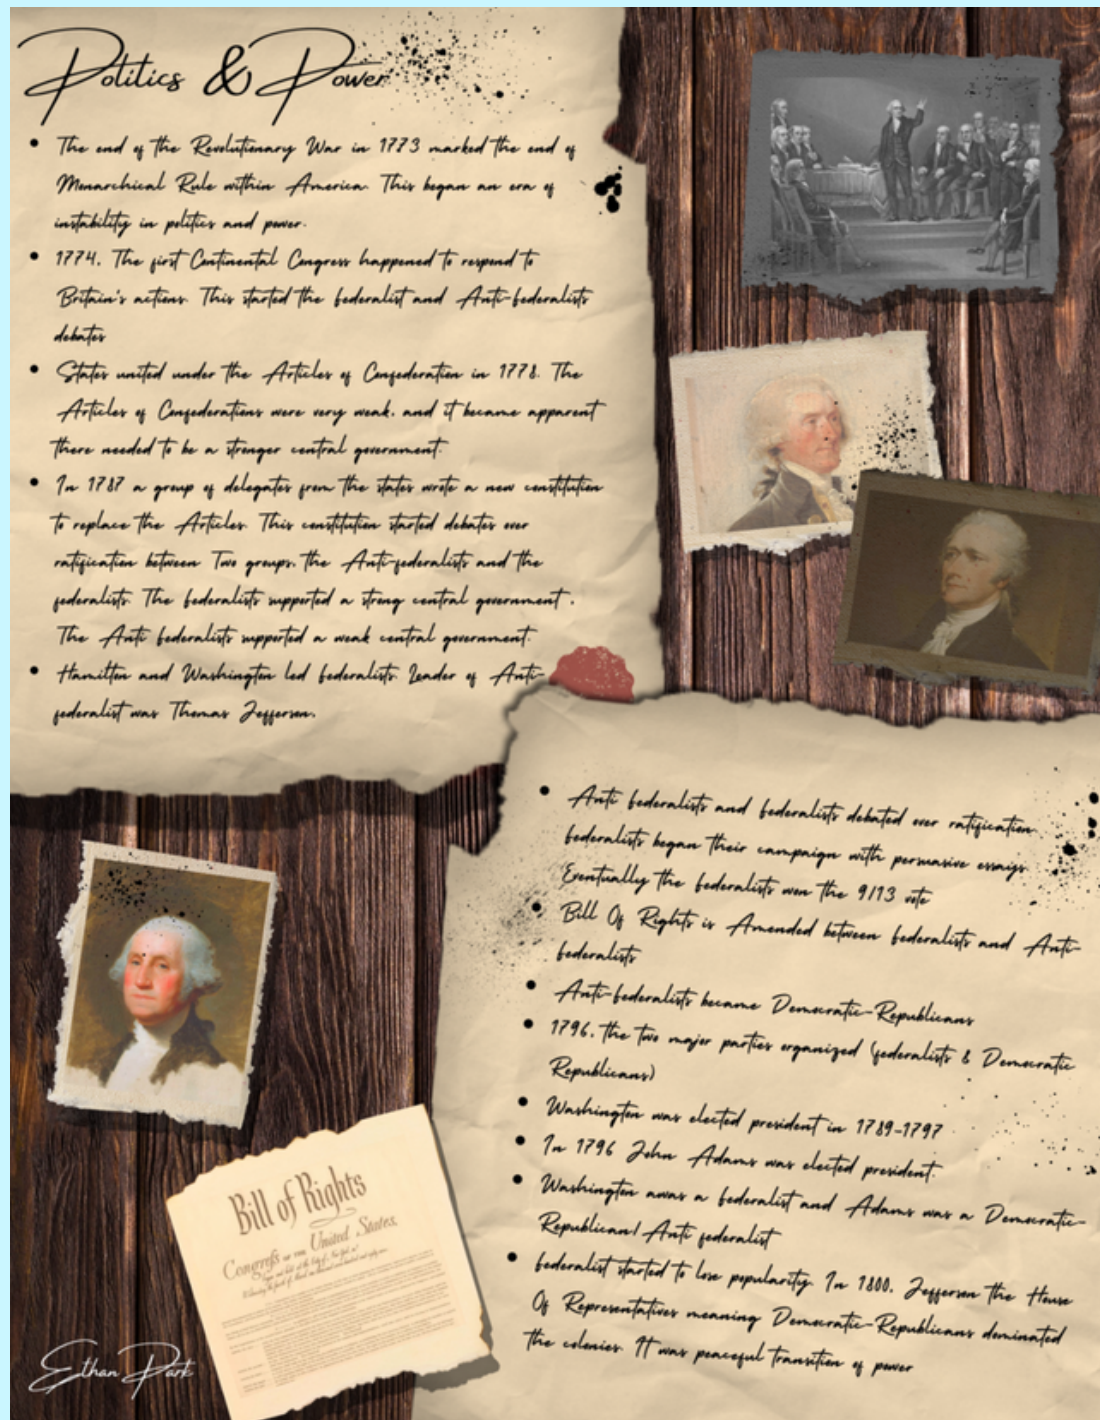 Politics & Power
• The end of the Revolutionary War in 1773 marked the end of
Monarchical Rule within America. This began an era of
instability in politics and power.
• 1774, The first Continental Congress happened to respond to
Britain's actions. This started the federalist and Anti-federalists
debates
• States united under the Articles of Confederation in 1778. The
Articles of Confederations were very weak, and it became apparent
there needed to be a stronger central government.
• In 1787 a group of delegates from the states wrote a new constitution
to replace the Articles. This constitution started debates over
ratification between Two groups, the Anti-federalists and the
federalists. The federalists supported a strong central government .
The Anti federalists supported a weak central government.
• Hamilton and Washington led federalists. Leader of Anti-
federalist was Thomas Jefferson.
• Anti federalists and federalists debated over ratification
federalists began their campaign with persuasive essays
Eventually the federalists won the 9/13 vote
• Bill Of Rights is Amended between federalists and Anti-
federalists
• Anti-federalists became Democratic-Republicans
• 1796, the two major parties organized (federalists & Democratic
Republicans)
• Washington was elected president in 1789-1797
• In 1796 John Adams was elected president.
• Washington awas a federalist and Adams was a Democratic-
Republican/ Anti federalist
• federalist started to lose popularity. In 1800, Jefferson the House
Of Representatives meaning Democratic-Republicans dominated
the colonies. It was peaceful transition of power
Bill of Rights
Congress OF THE United States,
Ethan Park